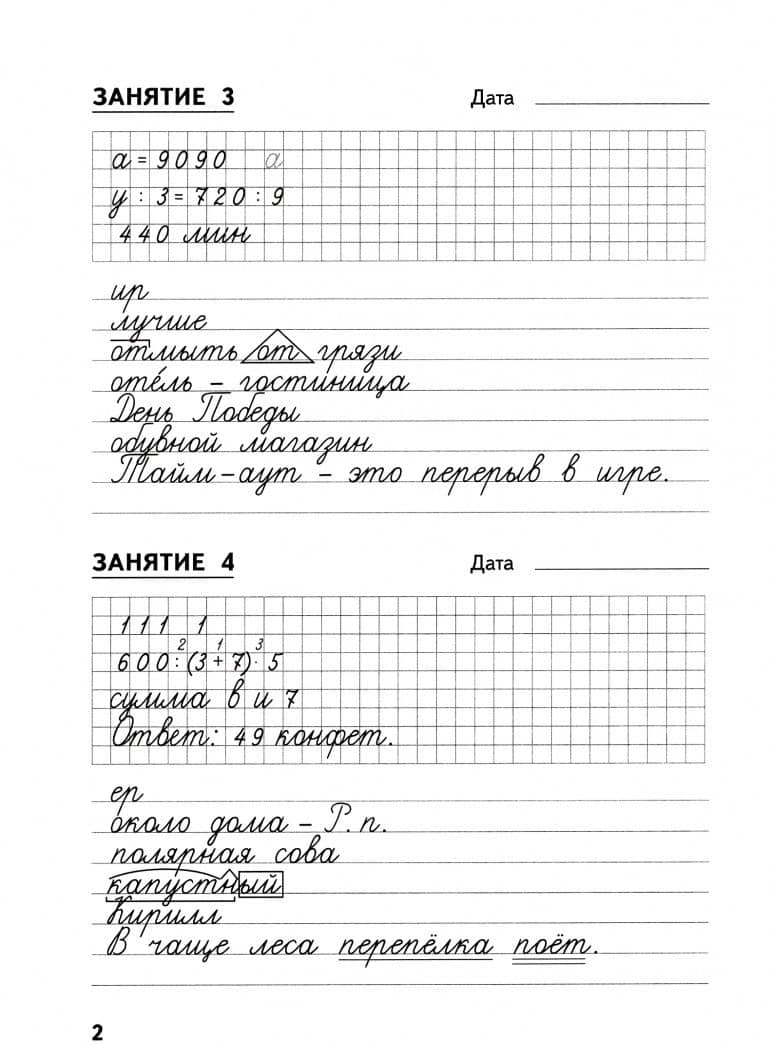 ЗАНЯТИЕ 3 Дата
а = 9090 а
у : 3 = 720 : 9
440 мин
ир
лучше
отмыть от грязи
оте́ль – гостиница
День Победы
обувной магазин
Тайм-аут – это перерыв в игре.
ЗАНЯТИЕ 4 Дата
1 1 1 1
2 1 3
600 : (3 + 7) · 5
сумма в и 7
Ответ: 49 конфет.
ер
около дома – Р. п.
полярная сова
капустный
Кирилл
В чаще леса перепёлка поёт.
2